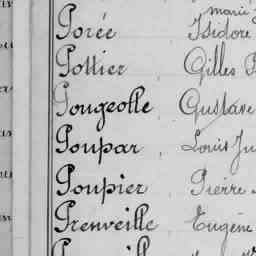 Marie
Porée Isidore
Pottier Gilles
Pougeolle Gustave
Poupar Louis
Poupier Pierre
Prenveille Eugène